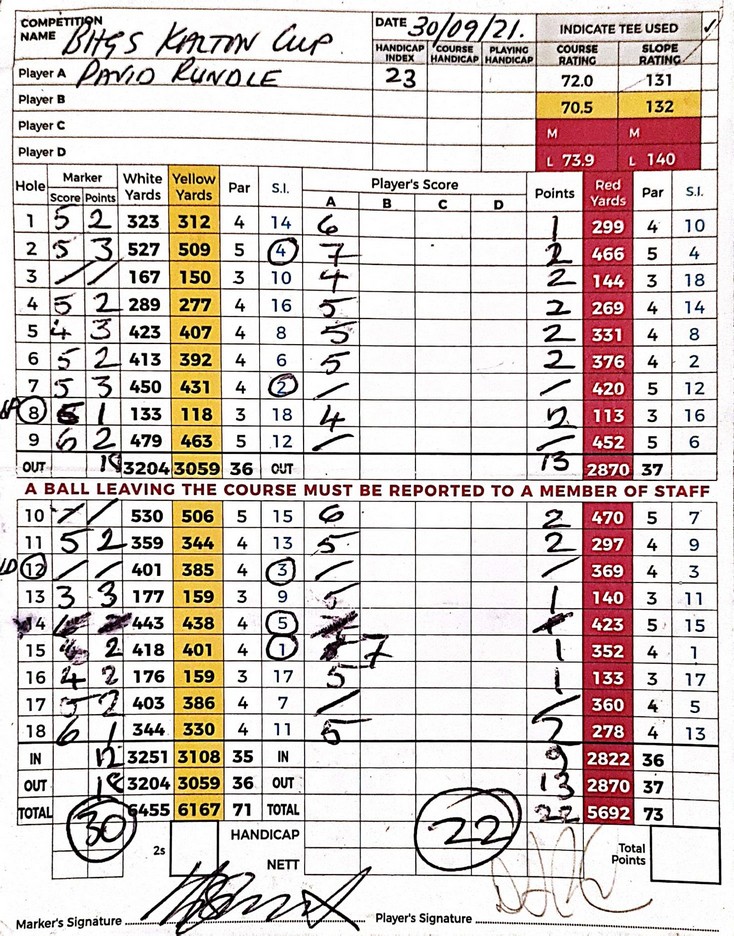 COMPETITION NAME BHGS KALTON CUP DATE 30/09/21. INDICATE TEE USED ✓
HANDICAP INDEX COURSE HANDICAP PLAYING HANDICAP COURSE RATING SLOPE RATING
Player A DAVID RUNDLE 23 72.0 131
Player B 70.5 132
Player C M M
Player D L 73.9 L 140
Hole Marker White Yards Yellow Yards Par S.I. Player's Score Points Red Yards Par S.I.
Score Points A B C D
1 5 2 323 312 4 14 6 1 299 4 10
2 5 3 527 509 5 4 7 2 466 5 4
3 / / 167 150 3 10 4 2 144 3 18
4 5 2 289 277 4 16 5 2 269 4 14
5 4 3 423 407 4 8 5 2 331 4 8
6 5 2 413 392 4 6 5 2 376 4 2
7 5 3 450 431 4 2 / / 420 5 12
8 5 1 133 118 3 18 4 2 113 3 16
9 6 2 479 463 5 12 / / 452 5 6
OUT 18 3204 3059 36 OUT 13 2870 37
A BALL LEAVING THE COURSE MUST BE REPORTED TO A MEMBER OF STAFF
10 / / 530 506 5 15 6 2 470 5 7
11 5 2 359 344 4 13 5 2 297 4 9
LD 12 / / 401 385 4 3 / / 369 4 3
13 3 3 177 159 3 9 5 1 140 3 11
14 443 438 4 5 423 5 15
15 2 418 401 4 1 7 1 352 4 1
16 4 2 176 159 3 17 5 1 133 3 17
17 5 2 403 386 4 7 / / 360 4 5
18 6 1 344 330 4 11 5 2 278 4 13
IN 12 3251 3108 35 IN 9 2822 36
OUT 18 3204 3059 36 OUT 13 2870 37
TOTAL 30 6455 6167 71 TOTAL 22 22 5692 73
2s HANDICAP Total Points
NETT
Marker's Signature Player's Signature